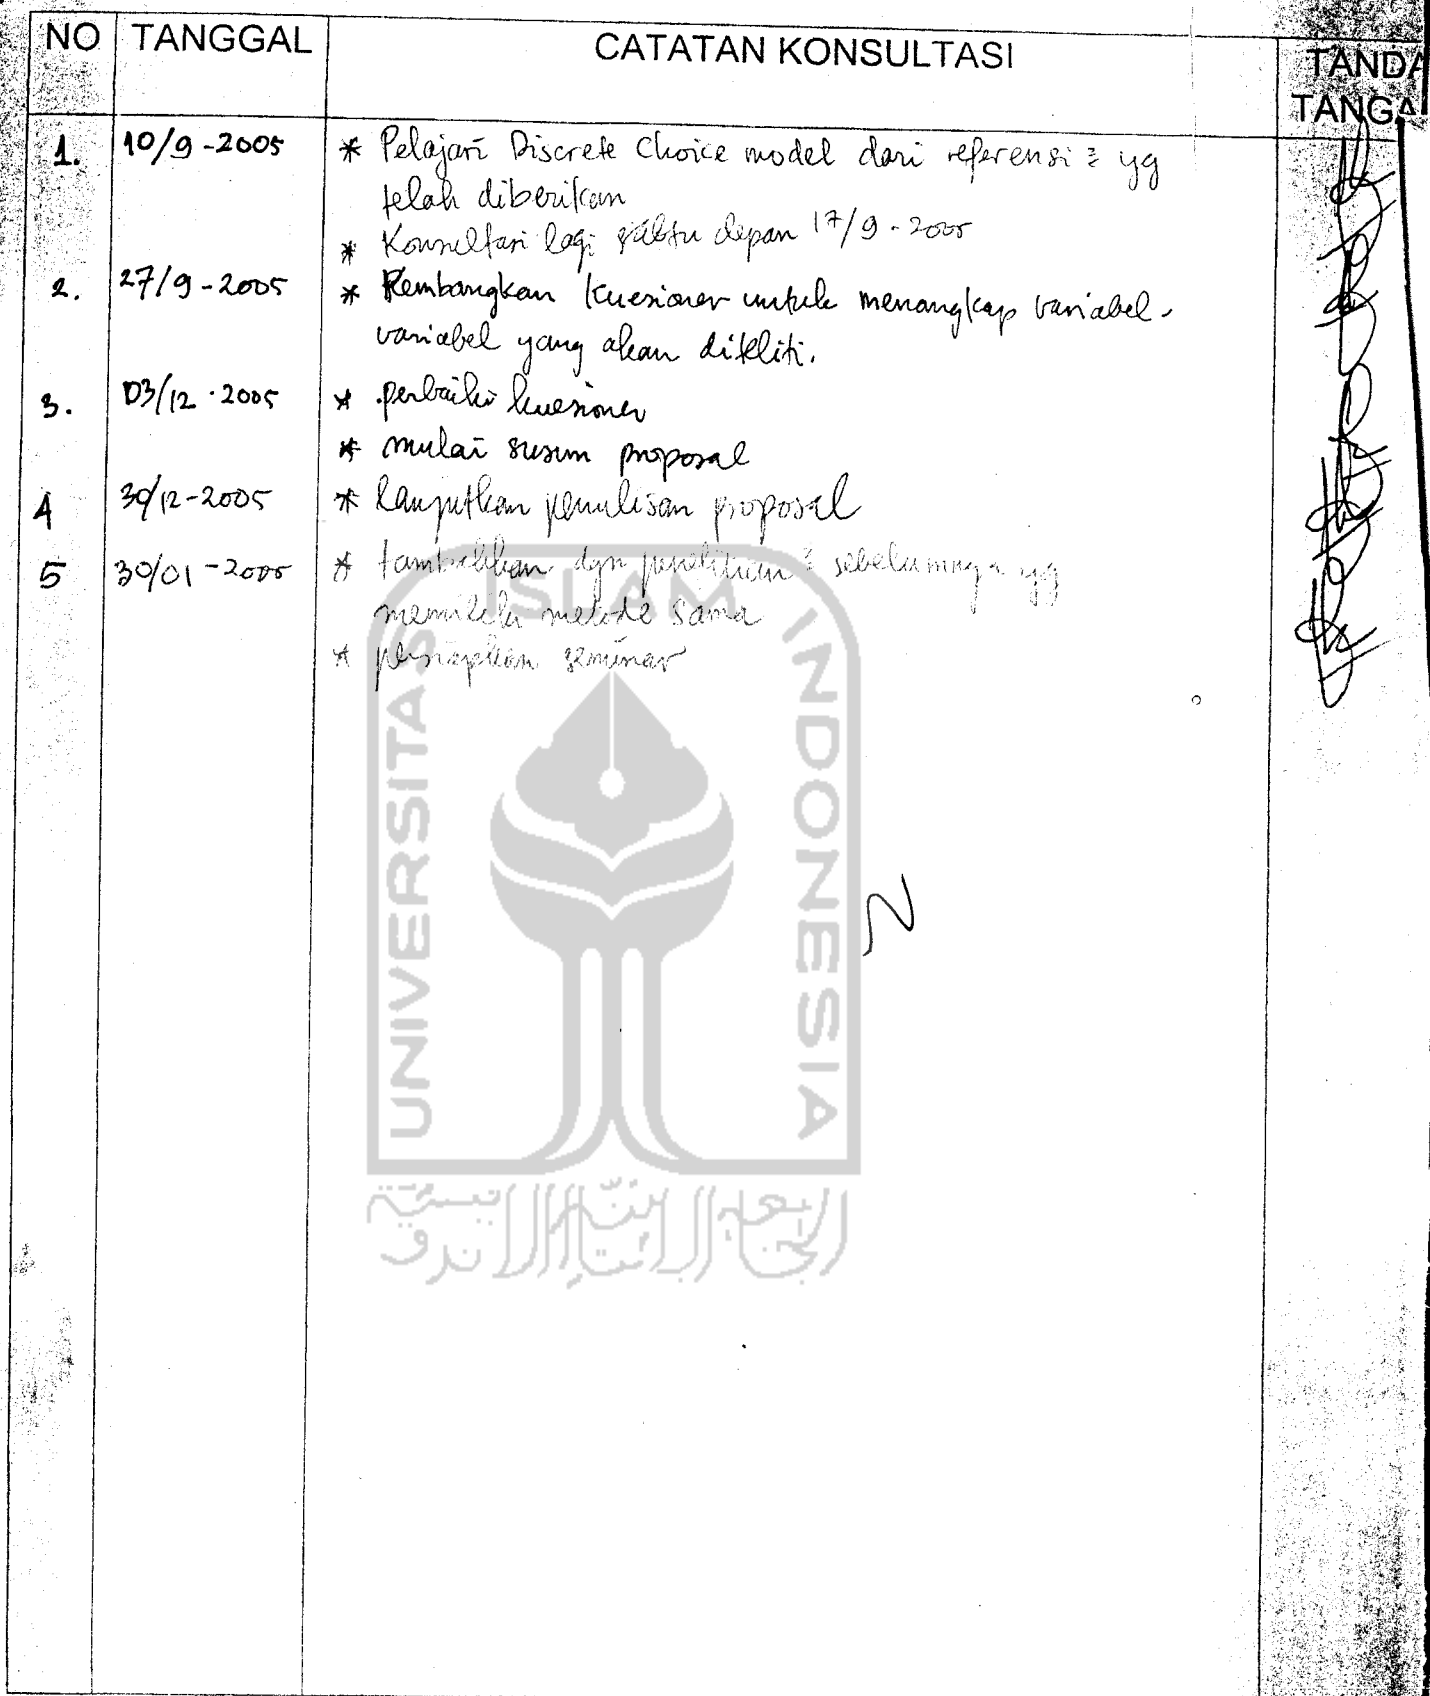 NO TANGGAL CATATAN KONSULTASI TANDA
TANGA
1. 10/9-2005 * Pelajari Discrete Choice model dari referensi2 yg
telah diberikan
* Konsultasi lagi sabtu depan 17/9-2005
2. 27/9-2005 * Kembangkan kuesioner untuk menangkap variabel-
variabel yang akan diteliti.
3. 03/12-2005 * perbaiki kuesioner
* mulai susun proposal
4 30/12-2005 * lanjutkan penulisan proposal
5 30/01-2005 * tambahkan dgn penelitian2 sebelumnya yg
memiliki metode sama
* persiapkan seminar
UNIVERSITAS
ISLAM
INDONESIA